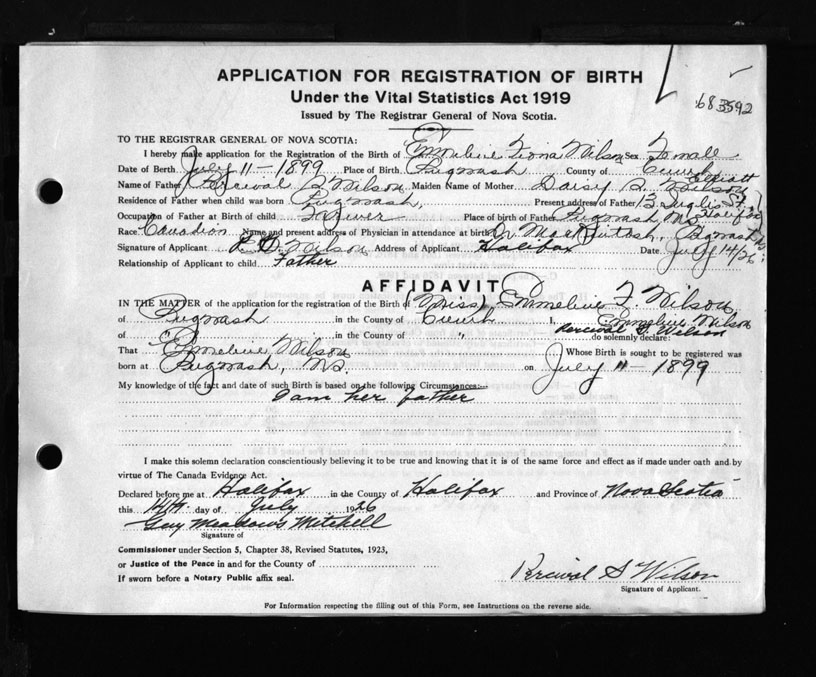 APPLICATION FOR REGISTRATION OF BIRTH
Under the Vital Statistics Act 1919
Issued by The Registrar General of Nova Scotia.
683592
TO THE REGISTRAR GENERAL OF NOVA SCOTIA:
I hereby make application for the Registration of the Birth of Emmeline Fiona Wilson Sex Female
Date of Birth July 11 - 1899 Place of Birth Pugwash County of
Name of Father Percival S Wilson Maiden Name of Mother Daisy Elliott Wilson
Residence of Father when child was born Pugwash, Present address of Father Inglis St. Halifax
Occupation of Father at Birth of child Place of birth of Father Pugwash NS
Race Canadian Name and present address of Physician in attendance at birth Dr MacKintosh, Pugwash
Signature of Applicant P. S. Wilson Address of Applicant Halifax Date July 14/26
Relationship of Applicant to child Father
AFFIDAVIT
IN THE MATTER of the application for the registration of the Birth of (Miss) Emmeline F. Wilson,
of Pugwash in the County of I, Emmeline Wilson
Percival S Wilson
of " in the County of " do solemnly declare:
That Emmeline Wilson Whose Birth is sought to be registered was
born at Pugwash, NS. on July 11 - 1899
My knowledge of the fact and date of such Birth is based on the following Circumstances:-
I am her father
I make this solemn declaration conscientiously believing it to be true and knowing that it is of the same force and effect as if made under oath and by
virtue of The Canada Evidence Act.
Declared before me at Halifax in the County of Halifax and Province of Nova Scotia
this 14th day of July 1926
Guy Meadows Mitchell
Signature of
Commissioner under Section 5, Chapter 38, Revised Statutes, 1923,
or Justice of the Peace in and for the County of
If sworn before a Notary Public affix seal.
Percival S Wilson
Signature of Applicant.
For Information respecting the filling out of this Form, see Instructions on the reverse side.